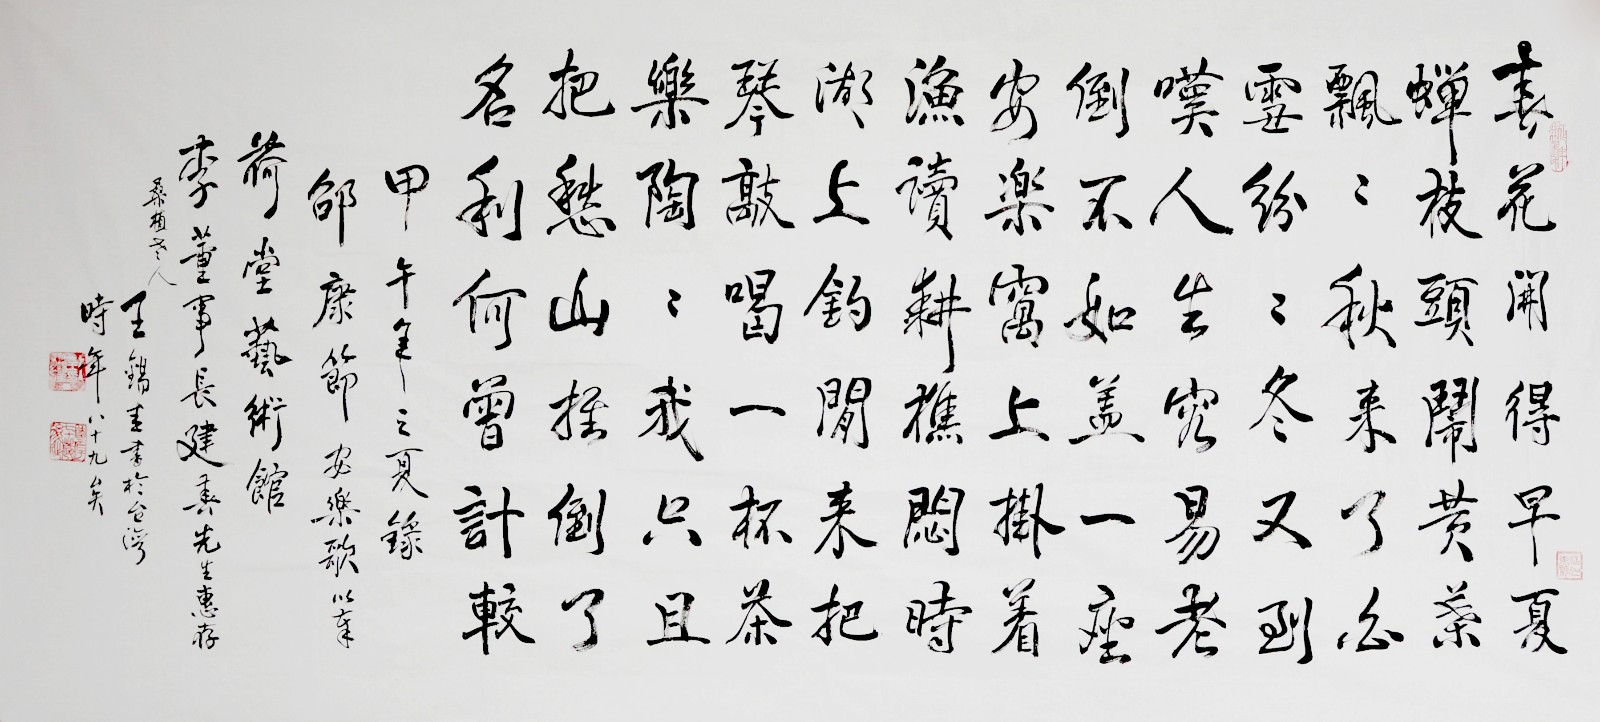 春花開得早夏
蝉枝頭鬧黄葉
飄〻秋来了白
雪紛〻冬又到
嘆人生容易老
倒不如盖一座
安楽窩上掛着
漁讀耕樵悶時
湖上釣閒来把
琴敲喝一杯茶
樂陶〻我只且
把愁山推倒了
名利何曾計較
甲午年之夏錄
邵康節安樂歌以奉
荷堂藝術館
李董事長建春先生惠存
桑植老人
王錫春書於台灣
時年八十九矣